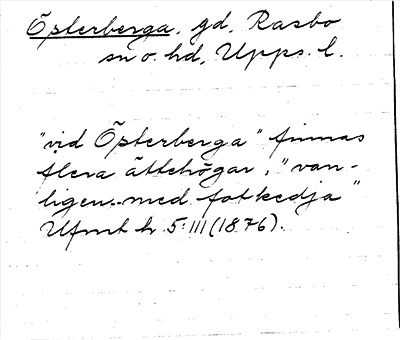 Österberga, gd, Rasbo
sn o. hd, Upps. l.
"vid Österberga" finnas
flera ättehögar, "van-
ligen med fotkedja"
Ufmt h 5:III (1876).